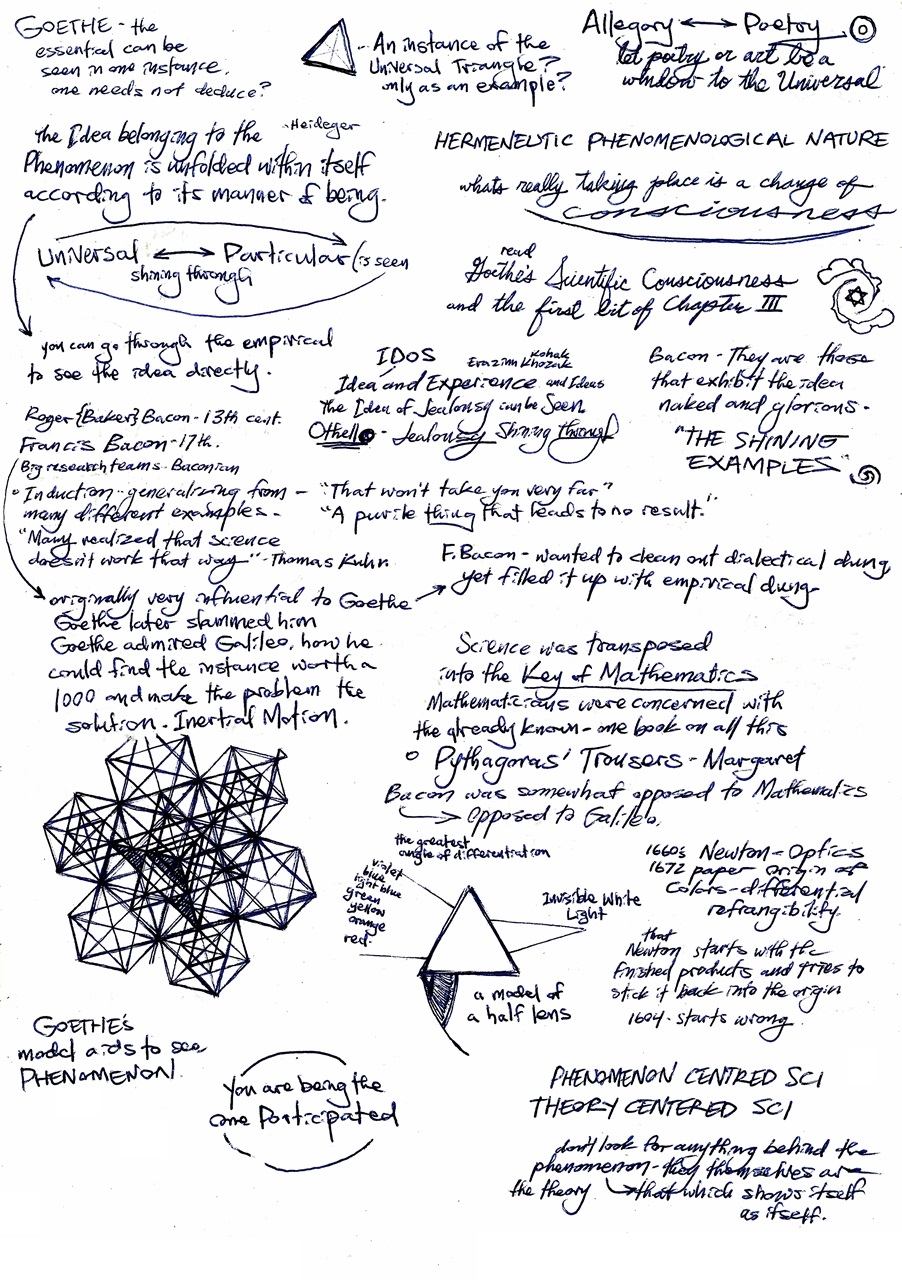 GOETHE - the
essential can be
seen in one instance.
one needs not deduce?
- An instance of the
Universal Triangle?
only as an example?
Allegory ↔ Poetry
let poetry or art be a
window to the Universal
-Heideger
the Idea belonging to the
Phenomenon is unfolded within itself
according to its manner of being.
HERMENEUTIC PHENOMENOLOGICAL NATURE
whats really taking place is a change of
consciousness
Universal ↔ Particular (is seen
shining through
read
Goethe's Scientific Consciousness
and the first bit of Chapter III
you can go through the empirical
to see the idea directly.
IDOS
Kohak
Erazim Khozak
Idea and Experience and Ideas
the Idea of Jealousy can be Seen.
Othello - Jealousy Shining Through
Bacon - They are those
that exhibit the idea
naked and glorious -
"THE SHINING
EXAMPLES"
Roger {Baker} Bacon - 13th cent.
Francis Bacon - 17th.
Big research teams - Baconian
Induction - generalizing from -
many different examples -
"Many realized that science
doesn't work that way" - Thomas Kuhn
"That won't take you very far"
"A purile thing that leads to no result."
F. Bacon - wanted to clean out dialectical dung,
yet filled it up with empirical dung
originally very influential to Goethe
Goethe later slammed him
Goethe admired Galileo, how he
could find the instance worth a
1000 and make the problem the
solution. Inertial Motion.
Science was transposed
into the Key of Mathematics
Mathematicians were concerned with
the already known - one book on all this
Pythagoras' Trousers - Margaret
Bacon was somewhat opposed to Mathematics
opposed to Galileo.
the greatest
angle of differentiation
violet
blue
light blue
green
yellow
orange
red.
Invisible White
Light
a model of
a half lens
1660s Newton - Optics
1672 paper origin of
Colors - differential
refrangibility.
that
Newton starts with the
finished products and tries to
stick it back into the origin
1604 - starts wrong
GOETHE's
model aids to see
PHENOMENON.
You are being the
one Participated
PHENOMENON CENTRED SCI
THEORY CENTERED SCI
don't look for anything behind the
phenomenon - they themselves are
the theory that which shows itself
as itself.